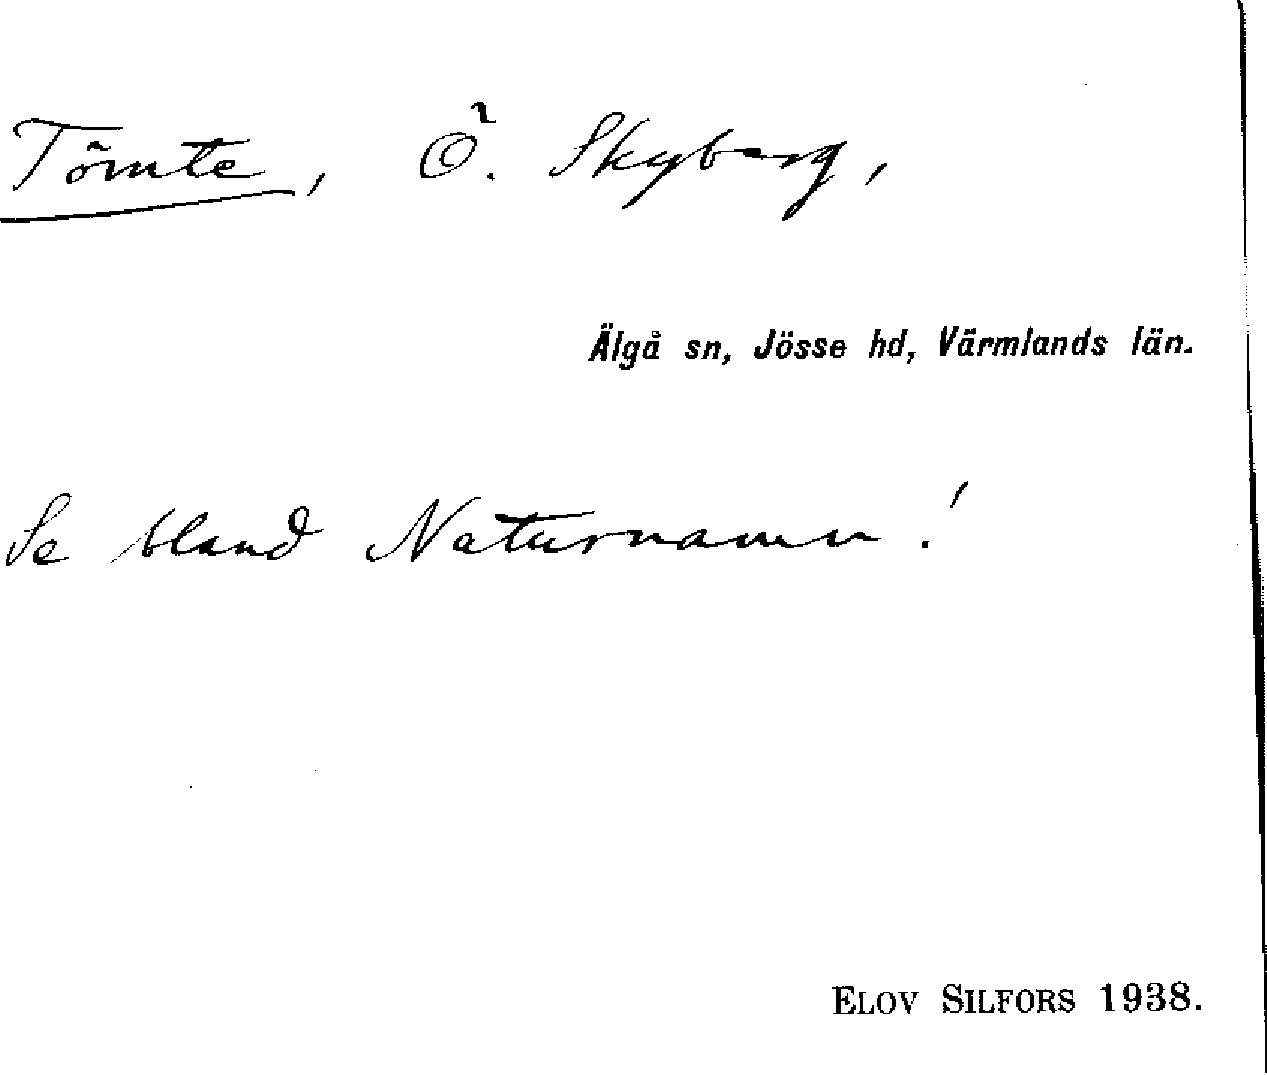 Tömte, Ö. Skyberg,
Älgå sn, Jösse hd, Värmlands län.
Se bland Naturnamn!
ELOV SILFORS 1938.